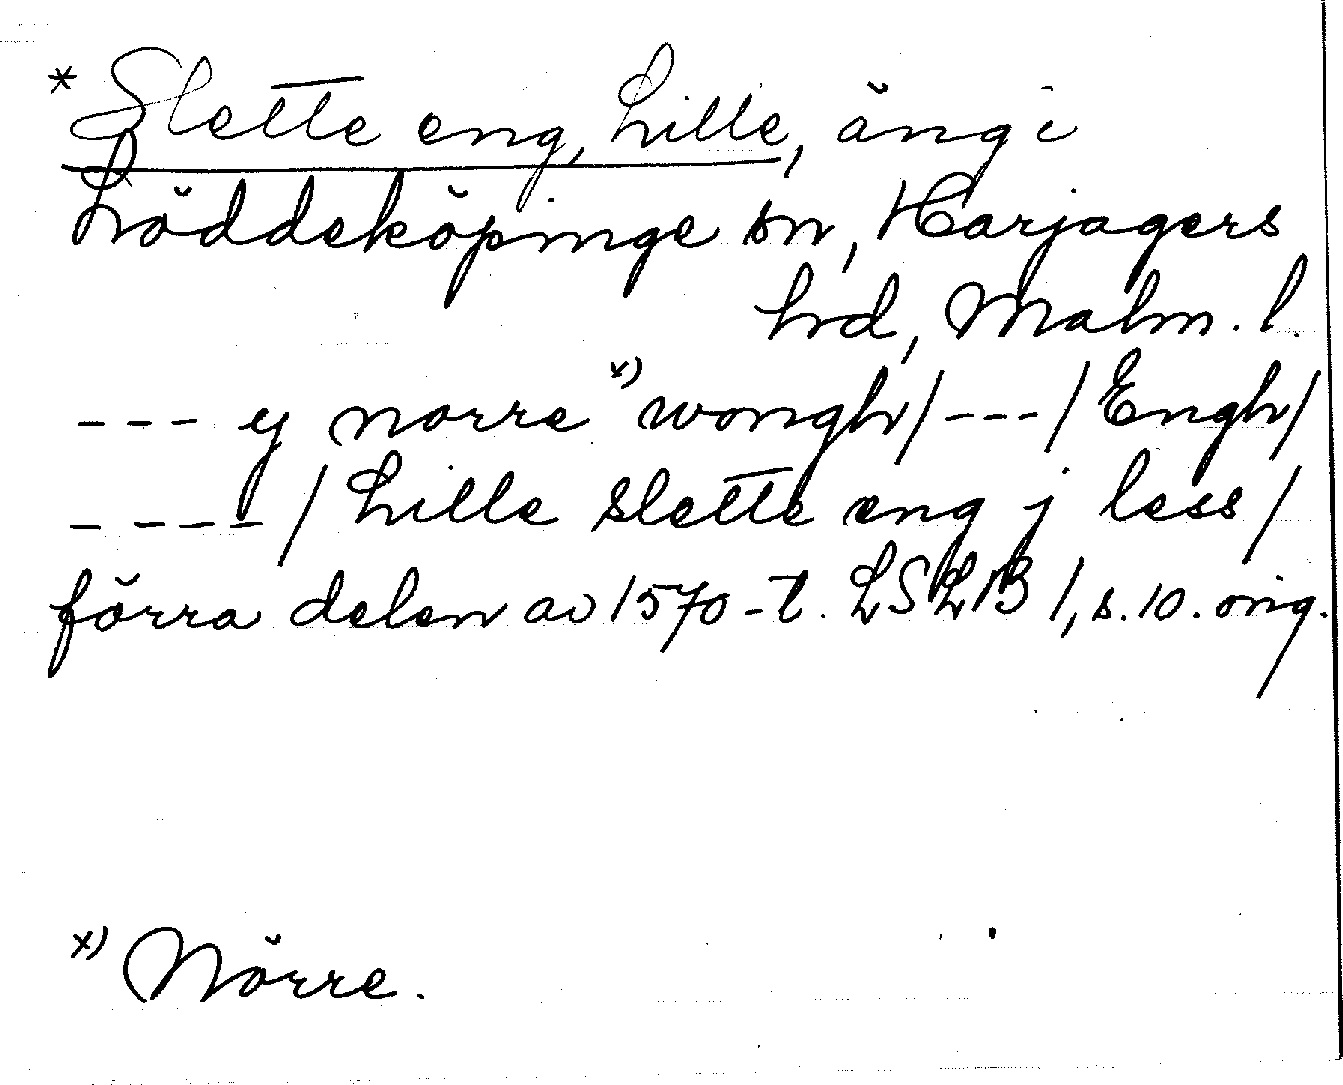 * Slette eng, Lille, äng i
Löddeköpinge sn, Harjagers
hd, Malm. l.
--- ej norre x) wongh/---/Engh/
----/Lille slette eng j less/
förra delen av 1570-t. LSLB 1, s. 10. orig.
x) Nörre.